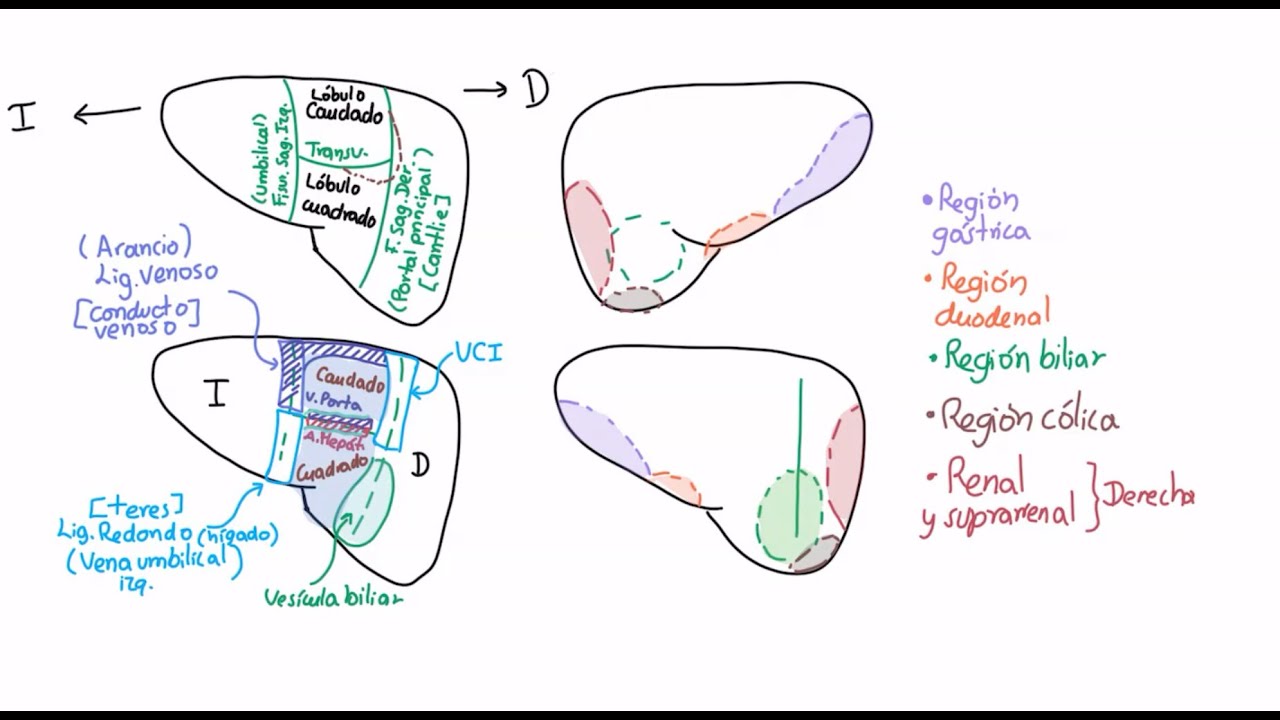 I
D
Lóbulo
Caudado
Transv.
Lóbulo
cuadrado
(Umbilical)
Fisur. Sag. Izq.
F. Sag. Der.
(Portal principal)
[Cantlie]
(Arancio)
Lig. Venoso
[conducto]
venoso
I
Caudado
V. Porta
A. Hepát
Cuadrado
D
VCI
[teres]
Lig. Redondo (hígado)
(Vena umbilical)
izq.
Vesícula biliar
• Región
gástrica
• Región
duodenal
• Región biliar
• Región cólica
• Renal
y suprarrenal
Derecha